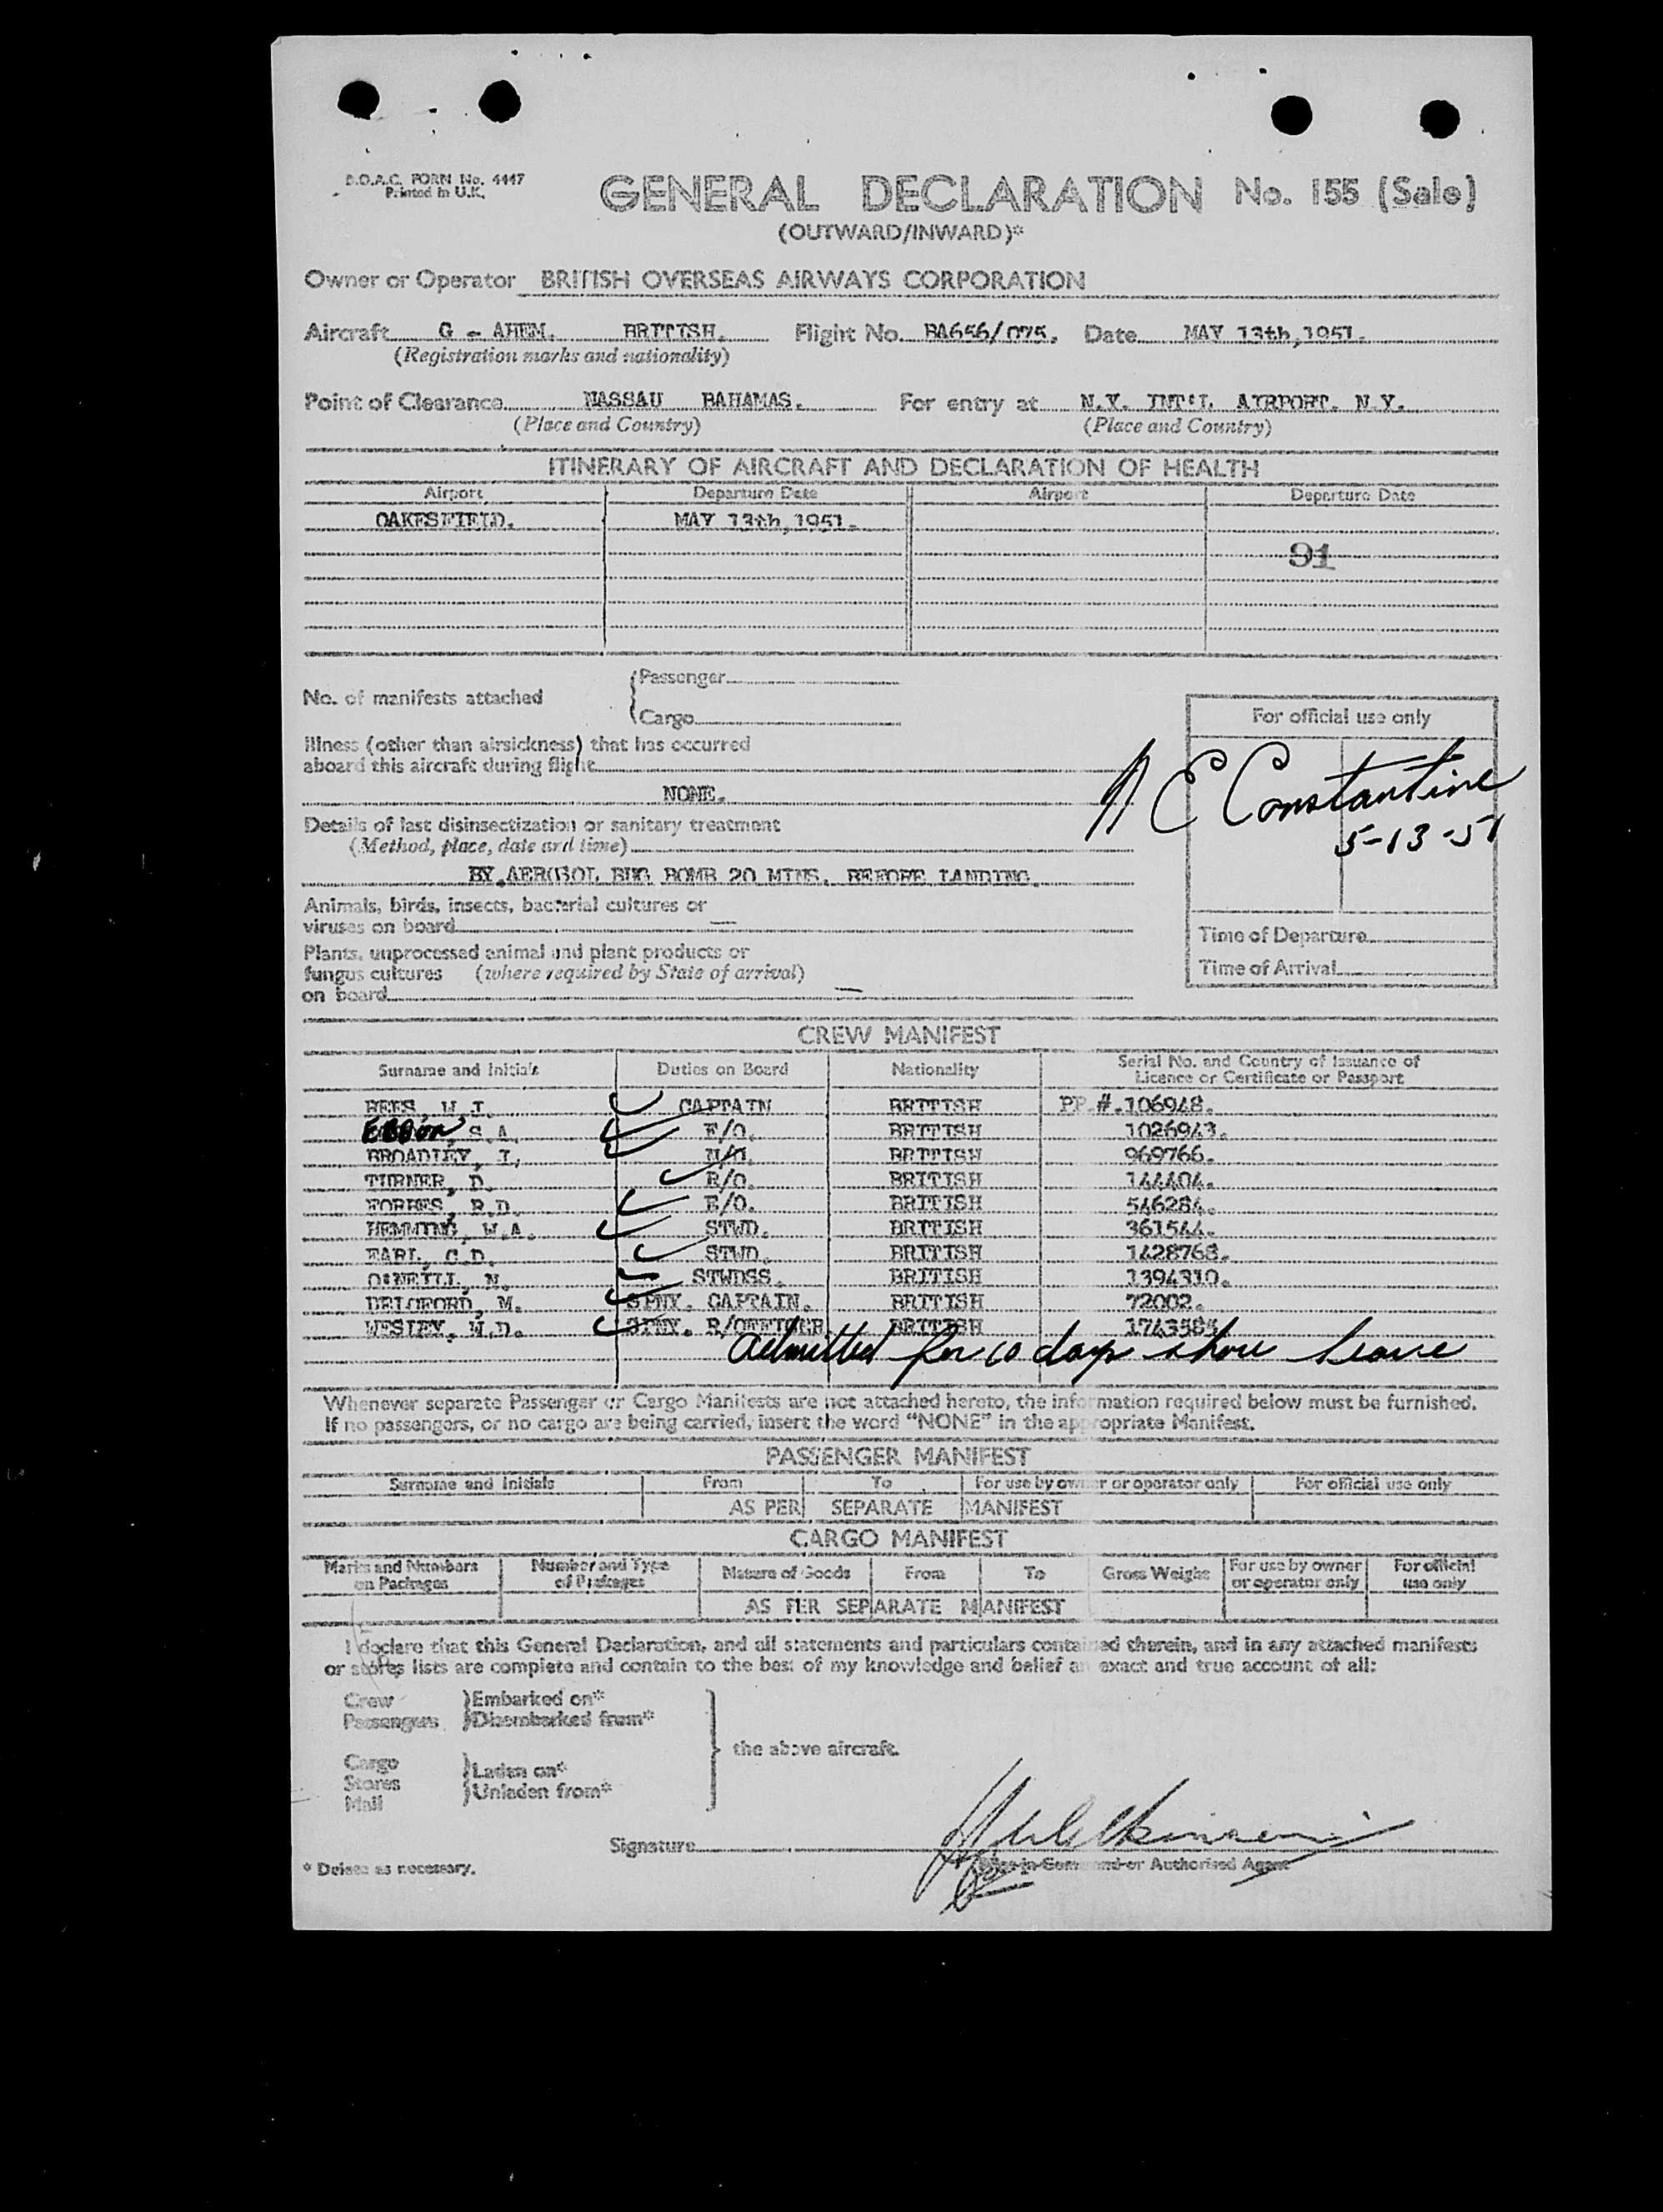 B.O.A.C. FORM No. 4447
Printed in U.K.
GENERAL DECLARATION No. 155 (Sale)
(OUTWARD/INWARD)*
Owner or Operator BRITISH OVERSEAS AIRWAYS CORPORATION
Aircraft G - AHEM. BRITISH. Flight No. BA656/075. Date MAY 13th, 1951.
(Registration marks and nationality)
Point of Clearance NASSAU BAHAMAS. For entry at N.Y. INT'L AIRPORT. N.Y.
(Place and Country) (Place and Country)
ITINERARY OF AIRCRAFT AND DECLARATION OF HEALTH
Airport Departure Date Airport Departure Date
OAKESFIELD. MAY 13th, 1951.
91
No. of manifests attached
Passenger
Cargo
For official use only
Illness (other than airsickness) that has occurred
aboard this aircraft during flight
NONE.
E Constantine
5-13-51
Details of last disinsectization or sanitary treatment
(Method, place, date and time)
BY AEROSOL BUG BOMB 20 MINS. BEFORE LANDING.
Animals, birds, insects, bacterial cultures or
viruses on board —
Time of Departure
Plants, unprocessed animal and plant products or
fungus cultures (where required by State of arrival)
on board —
Time of Arrival
CREW MANIFEST
Surname and Initials Duties on Board Nationality Serial No. and Country of Issuance of
Licence or Certificate or Passport
REES, W.J. CAPTAIN BRITISH PP.#.106948.
Ebbon, S.A. F/O. BRITISH 1026943.
BROADLEY, I. N/O. BRITISH 969766.
TURNER, D. R/O. BRITISH 144404.
FORBES, R.D. E/O. BRITISH 546284.
HEMMING, W.A. STWD. BRITISH 361544.
EARL, C.D. STWD. BRITISH 1428768.
O'NEILL, N. STWDSS. BRITISH 1394310.
BELOFORD, M. SPNY. CAPTAIN. BRITISH 72002.
WESLEY, W.D. SPNY. R/OFFICER BRITISH 1743585
Admitted for 10 days shore leave
Whenever separate Passenger or Cargo Manifests are not attached hereto, the information required below must be furnished.
If no passengers, or no cargo are being carried, insert the word "NONE" in the appropriate Manifest.
PASSENGER MANIFEST
Surname and Initials From To For use by owner or operator only For official use only
AS PER SEPARATE MANIFEST
CARGO MANIFEST
Marks and Numbers on Packages Number and Type of Packages Nature of Goods From To Gross Weight For use by owner or operator only For official use only
AS PER SEPARATE MANIFEST
I declare that this General Declaration, and all statements and particulars contained therein, and in any attached manifests
or stores lists are complete and contain to the best of my knowledge and belief an exact and true account of all:
Crew
Passengers
Embarked on*
Disembarked from*
the above aircraft.
Cargo
Stores
Mail
Laden on*
Unladen from*
Signature
Pilot-in-Command or Authorised Agent
* Delete as necessary.